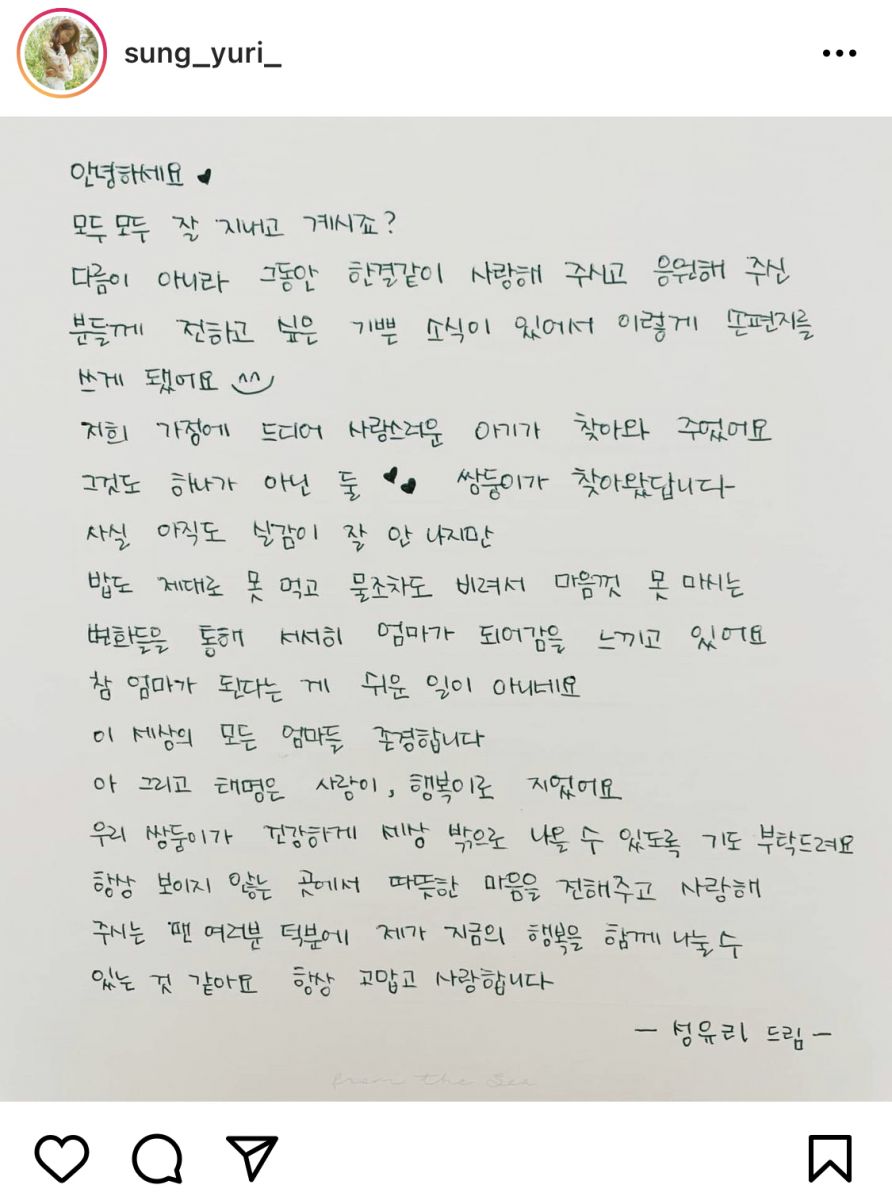 sung_yuri_
안녕하세요 ♥
모두모두 잘 지내고 계시죠?
다름이 아니라 그동안 한결같이 사랑해 주시고 응원해 주신
분들께 전하고 싶은 기쁜 소식이 있어서 이렇게 손편지를
쓰게 됐어요 ^^
저희 가정에 드디어 사랑스러운 아기가 찾아와 주었어요
그것도 하나가 아닌 둘 ♥♥ 쌍둥이가 찾아왔답니다~
사실 아직도 실감이 잘 안 나지만
밥도 제대로 못 먹고 물조차도 비려서 마음껏 못 마시는
변화들을 통해 서서히 엄마가 되어감을 느끼고 있어요
참 엄마가 된다는 게 쉬운 일이 아니네요
이 세상의 모든 엄마들 존경합니다
아 그리고 태명은 사랑이, 행복이로 지었어요
우리 쌍둥이가 건강하게 세상 밖으로 나올 수 있도록 기도 부탁드려요
항상 보이지 않는 곳에서 따뜻한 마음을 전해주고 사랑해
주시는 팬 여러분 덕분에 제가 지금의 행복을 함께 나눌 수
있는 것 같아요 항상 고맙고 사랑합니다
- 성유리 드림 -
from the Sea